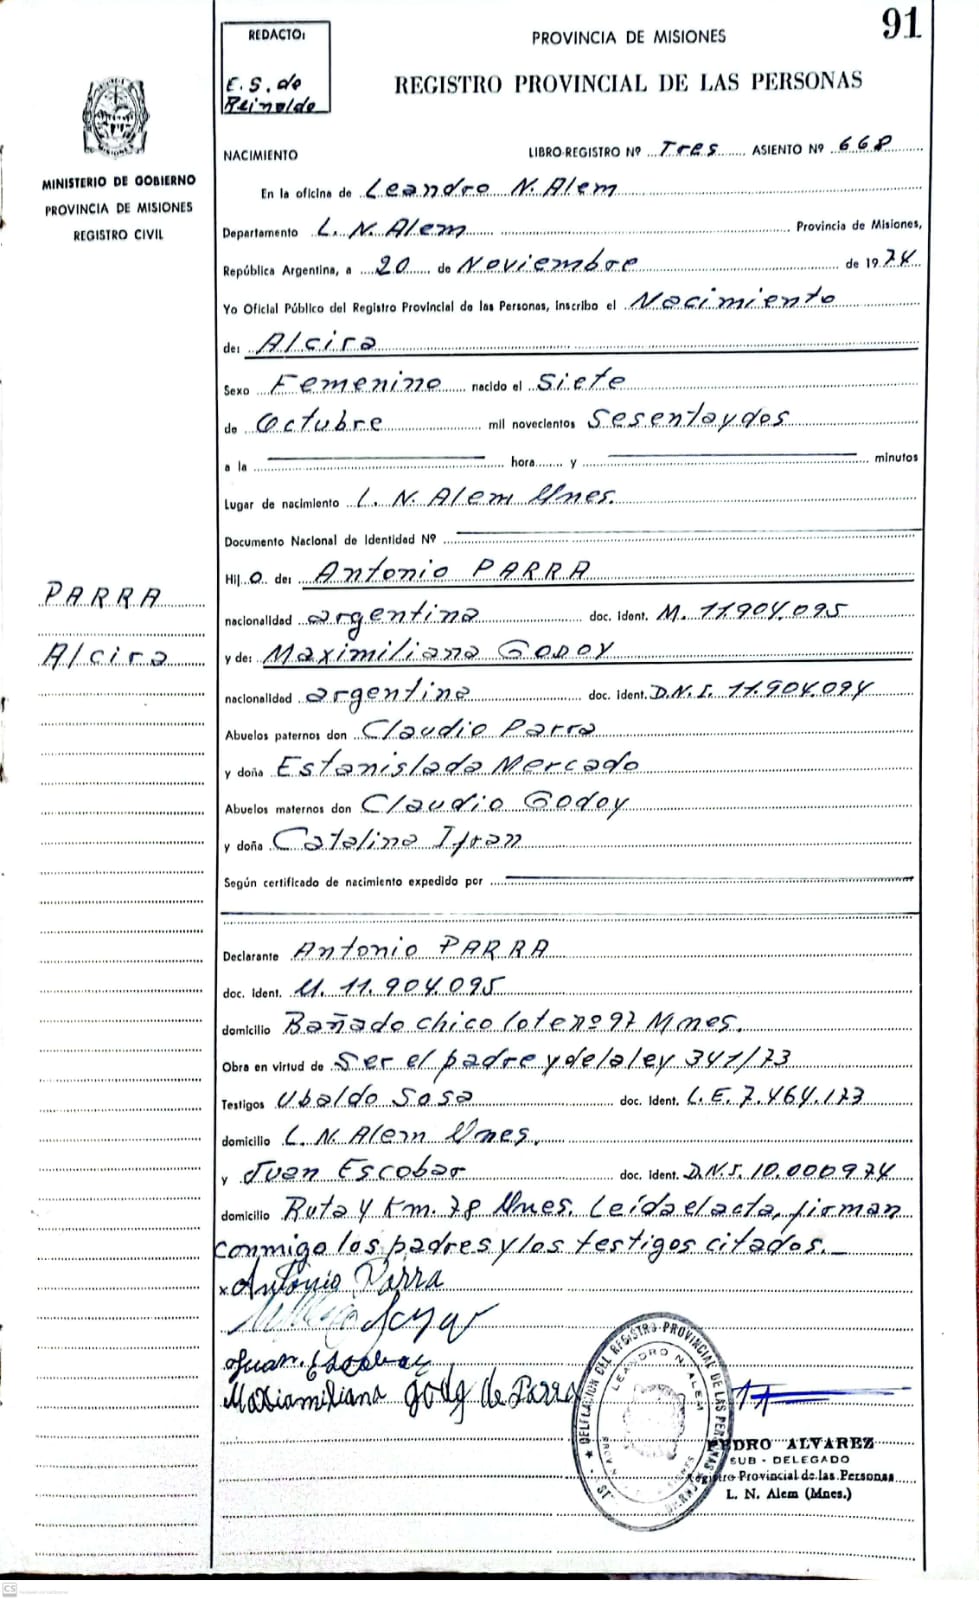 91
REDACTO:
E. S. de
Reinoldo
PROVINCIA DE MISIONES
REGISTRO PROVINCIAL DE LAS PERSONAS
MINISTERIO DE GOBIERNO
PROVINCIA DE MISIONES
REGISTRO CIVIL
NACIMIENTO
LIBRO-REGISTRO Nº Tres ASIENTO Nº 668
En la oficina de Leandro N. Alem
Departamento L. N. Alem Provincia de Misiones,
República Argentina, a 20 de Noviembre de 1974
Yo Oficial Público del Registro Provincial de las Personas, inscribo el Nacimiento
de: Alcira
Sexo Femenino nacido el Siete
de Octubre mil novecientos Sesentaydos
a la hora y minutos
Lugar de nacimiento L. N. Alem Mnes.
Documento Nacional de Identidad Nº
Hij o de: Antonio PARRA
PARRA
nacionalidad argentina doc. Ident. M. 11.904.095
Alcira
y de: Maximiliana GODOY
nacionalidad argentina doc. Ident. D.N.I. 11.904.094
Abuelos paternos don Claudio Parra
y doña Estanislada Mercado
Abuelos maternos don Claudio Godoy
y doña Catalina Ifran
Según certificado de nacimiento expedido por
Declarante Antonio PARRA
doc. Ident. M. 11.904.095
domicilio Bañado chico lote nº 97 Mnes.
Obra en virtud de Ser el padre y de la ley 341/73
Testigos Ubaldo Sosa doc. Ident. L.E. 7.464.173
domicilio L. N. Alem Mnes.
y Juan Escobar doc. Ident. D.N.I. 10.000974
domicilio Ruta 4 Km. 78 Mnes. Leída el acta, firman
conmigo los padres y los testigos citados._
x Antonio Parra
Juan Escobar
Maxiamiliana Godoy de Parra
DELEGACION DEL REGISTRO PROVINCIAL DE LAS PERSONAS
LEANDRO N. ALEM
PEDRO ALVAREZ
SUB - DELEGADO
Registro Provincial de las Personas
L. N. Alem (Mnes.)
CS